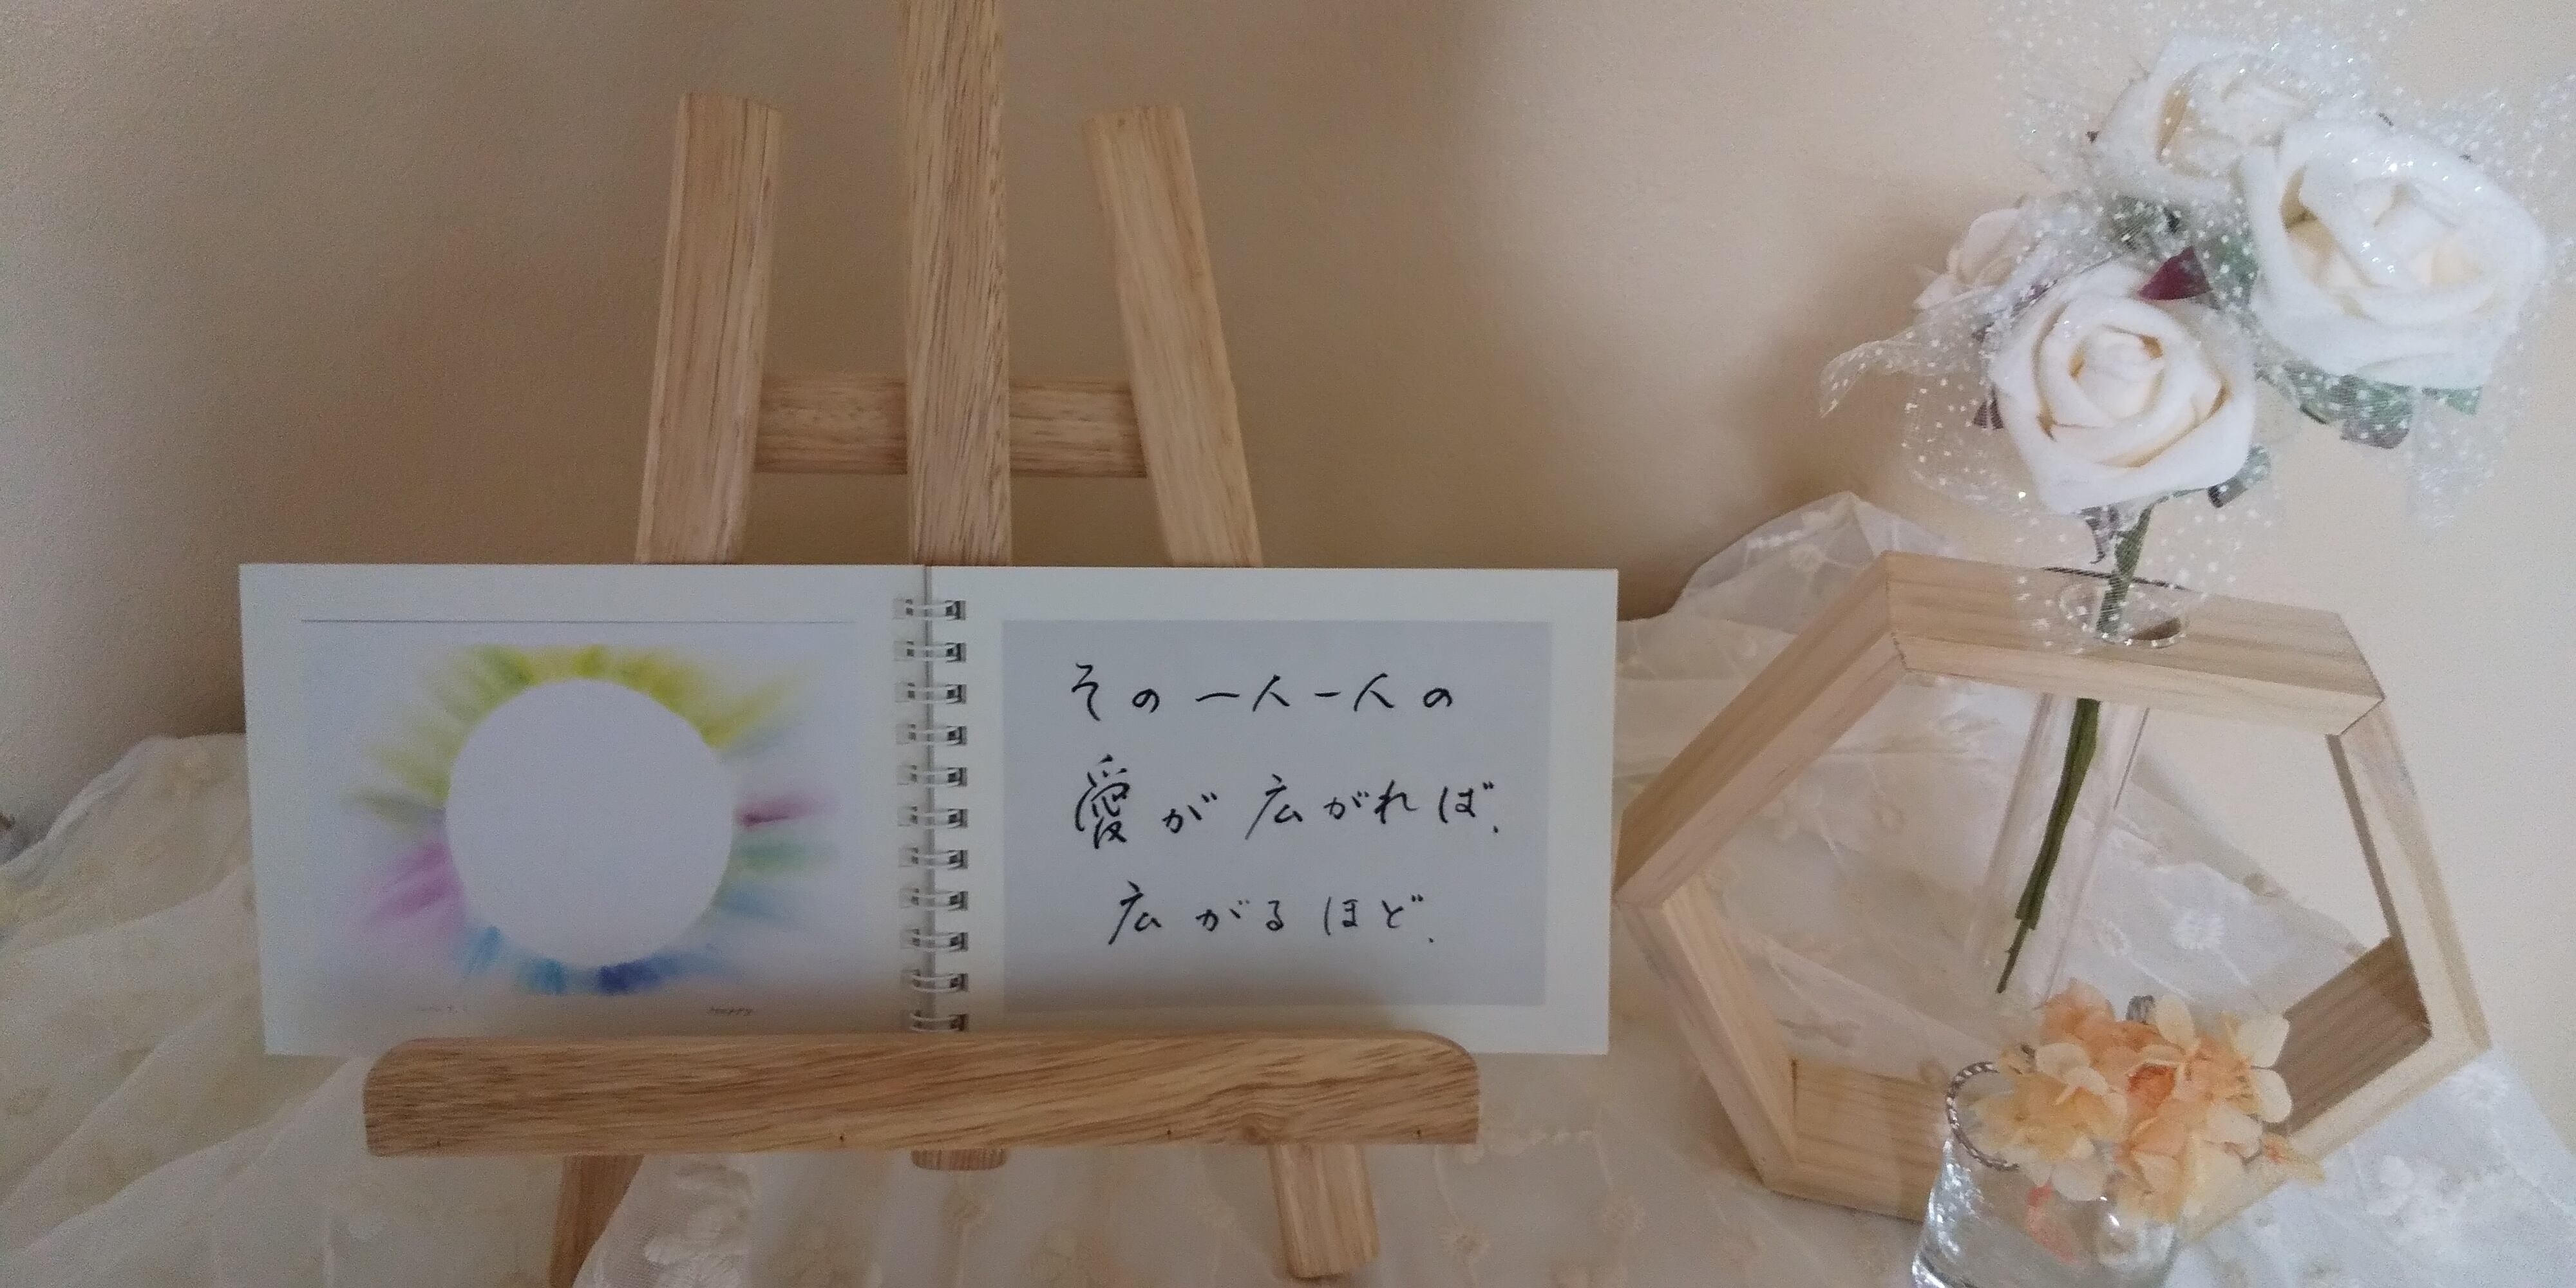 その一人一人の
愛が広がれば、
広がるほど、